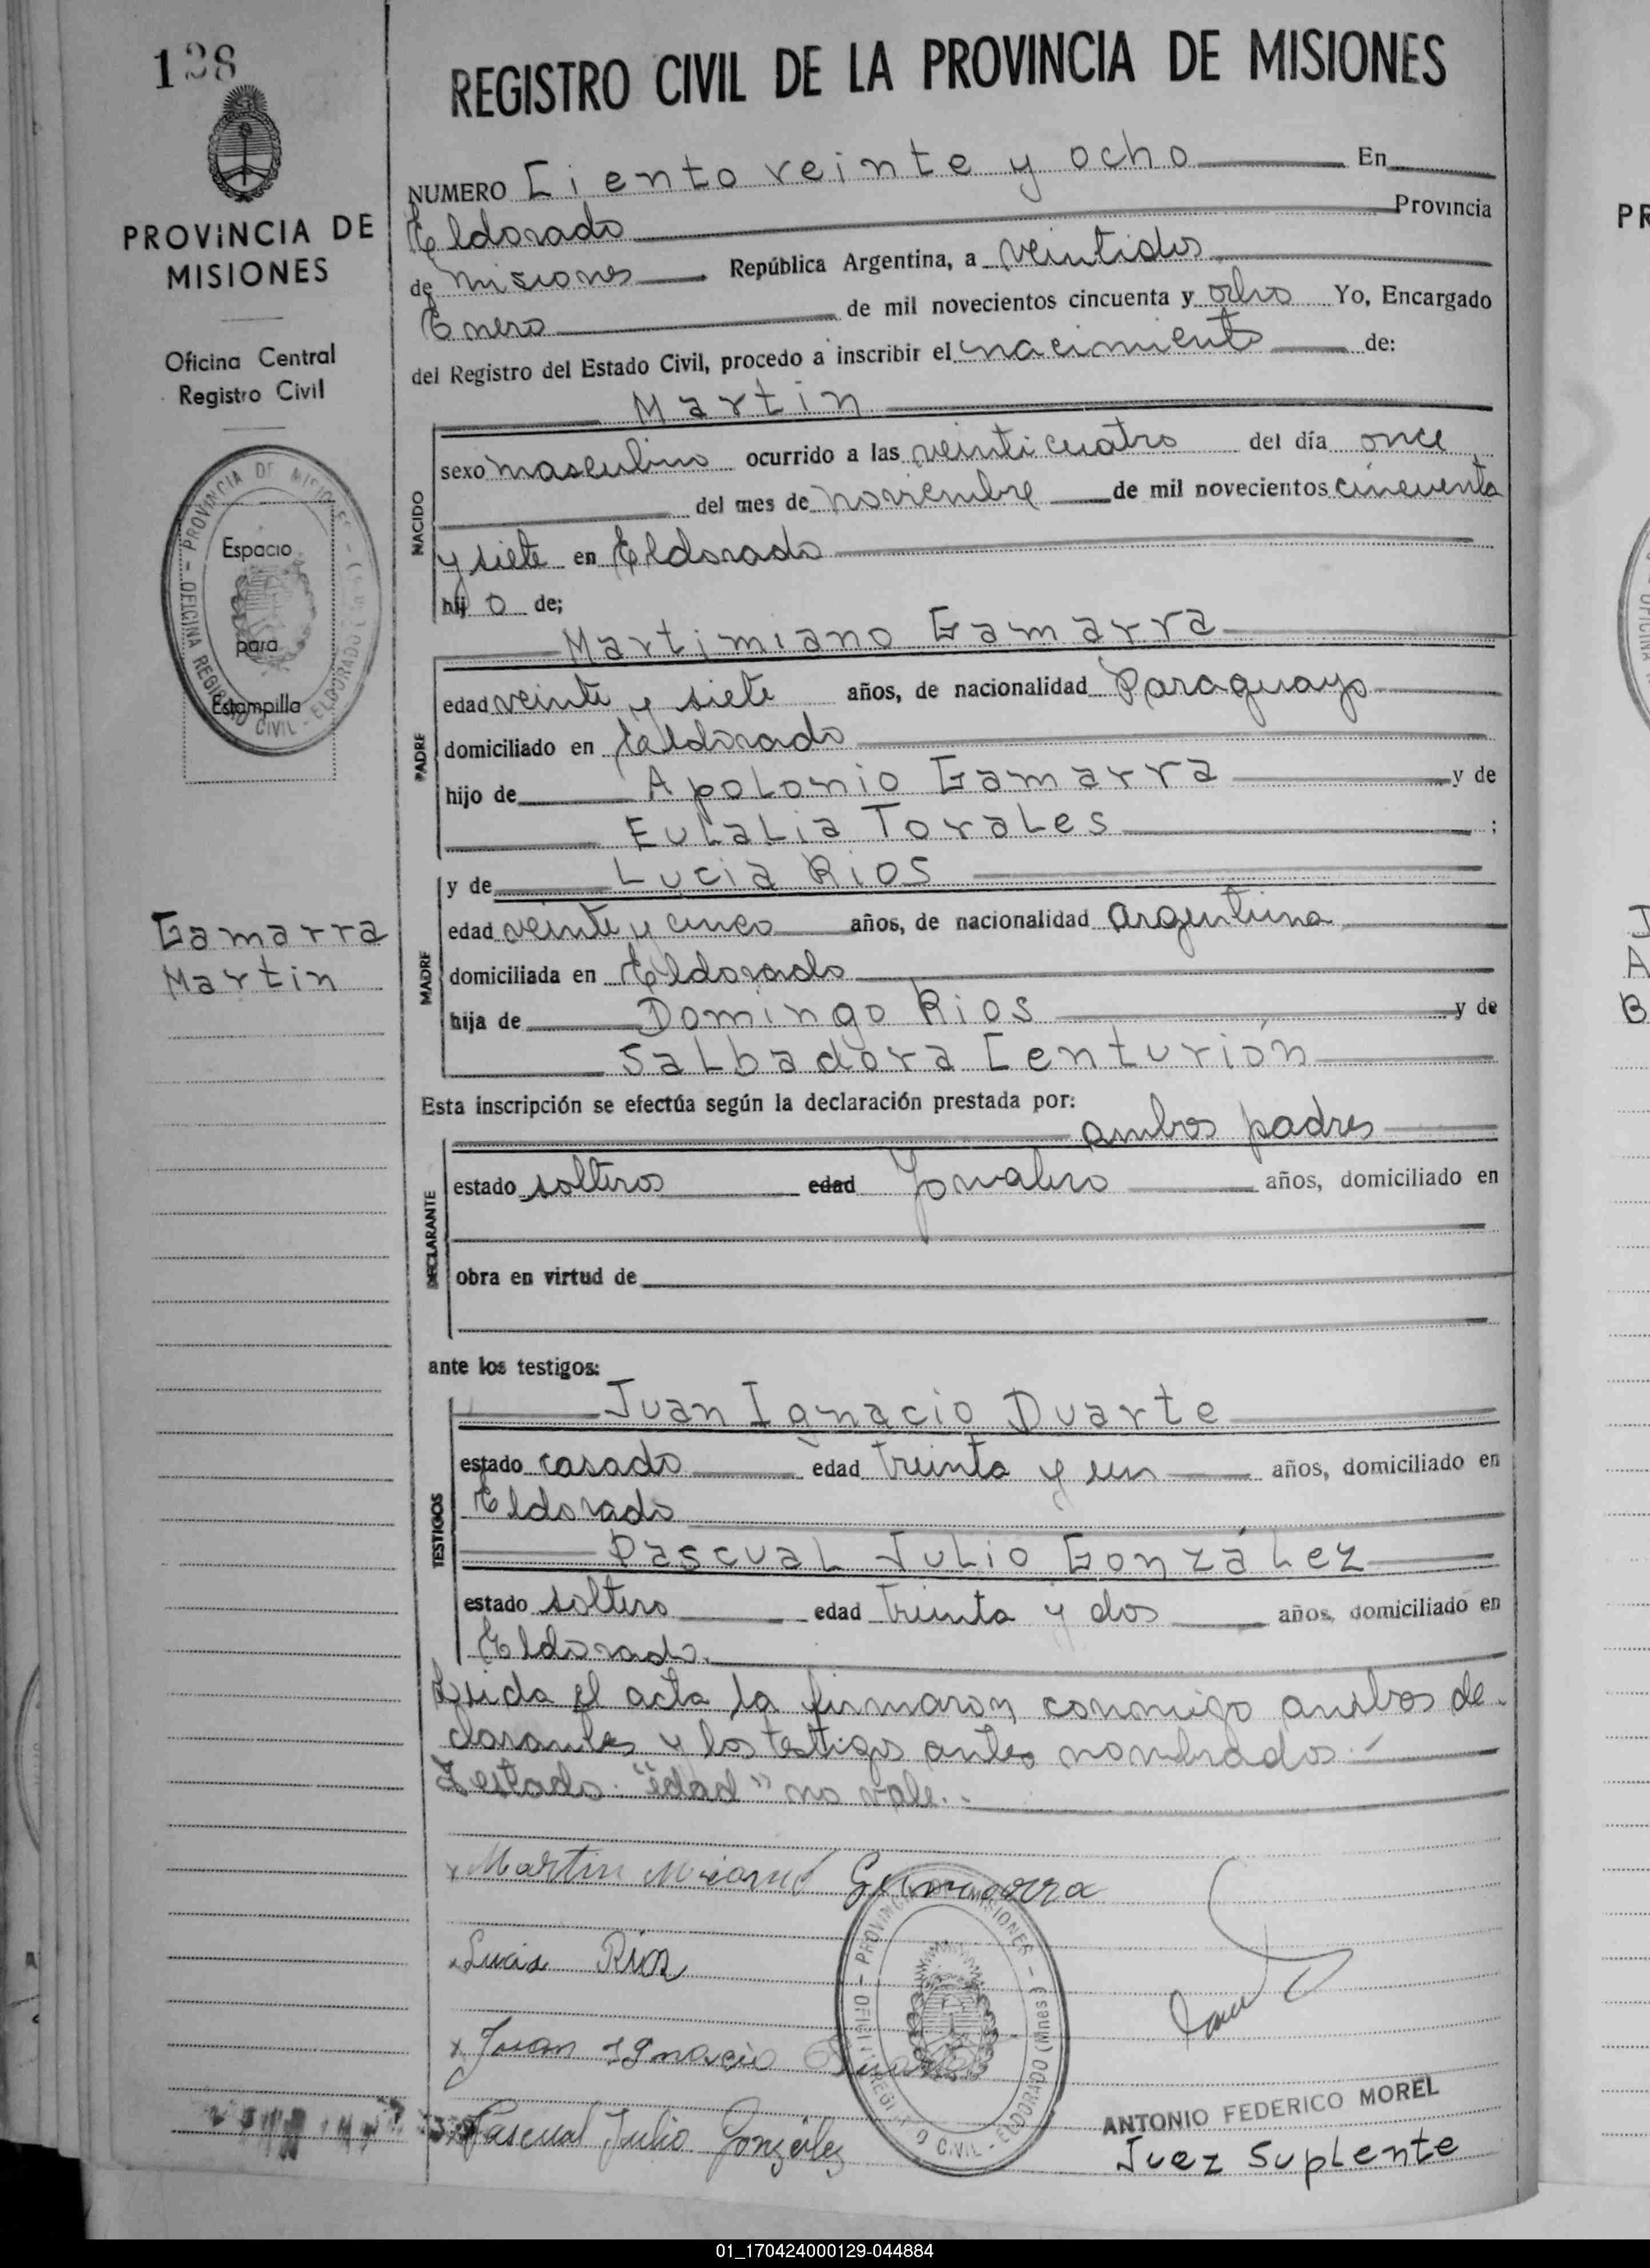 128
REGISTRO CIVIL DE LA PROVINCIA DE MISIONES
PROVINCIA DE
MISIONES
Oficina Central
Registro Civil
PROVINCIA DE MISIONES - OFICINA REGISTRO CIVIL - ELDORADO
Espacio
para
Estampilla
Gamarra
Martin
NUMERO Ciento veinte y ocho En
Eldorado Provincia
de Misiones República Argentina, a veintidos
Enero de mil novecientos cincuenta y ocho Yo, Encargado
del Registro del Estado Civil, procedo a inscribir el nacimiento de:
Martin
NACIDO
sexo masculino ocurrido a las veinticuatro del día once
del mes de noviembre de mil novecientos cincuenta
y siete en Eldorado
hij o de;
Martimiano Gamarra
PADRE
edad veinte y siete años, de nacionalidad Paraguayo
domiciliado en Eldorado
hijo de Apolonio Gamarra y de
Eulalia Torales ;
y de Lucia Rios
MADRE
edad veinte y cinco años, de nacionalidad argentina
domiciliada en Eldorado
hija de Domingo Rios y de
Salbadora Centurión
Esta inscripción se efectúa según la declaración prestada por:
ambos padres
DECLARANTE
estado solteros edad Jornalero años, domiciliado en
obra en virtud de
ante los testigos:
Juan Ignacio Duarte
TESTIGOS
estado casado edad treinta y un años, domiciliado en
Eldorado
Pascual Julio González
estado soltero edad treinta y dos años, domiciliado en
Eldorado.
Leida el acta la firmaron conmigo ambos de-
clarantes y los testigos antes nombrados.-
Testado: "edad" no vale..
x Martin Miano Gamarra
x Lucia Rios
x Juan Ignacio Duarte
Pascual Julio González
PROVINCIA DE MISIONES - OFICINA REGISTRO CIVIL - ELDORADO (Mnes.)
ANTONIO FEDERICO MOREL
Juez Suplente
PR
01_170424000129-044884